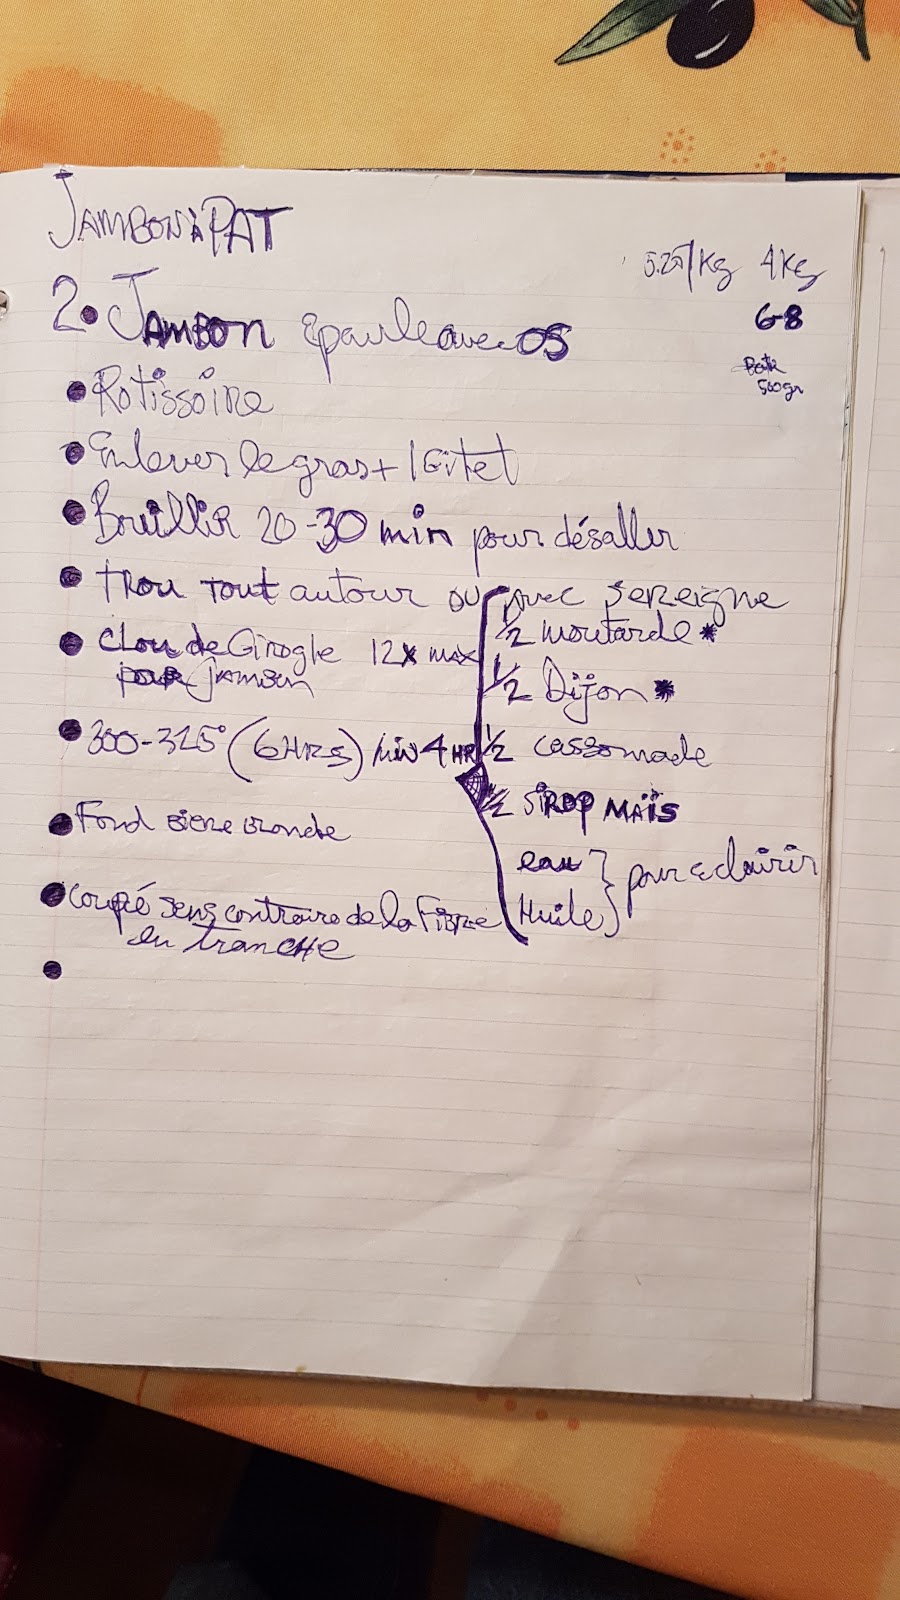 JAMBON À PAT
5.25/Kg 4Kg
2. JAMBON épaule avec OS
6-8
Boite
500gr
• Rotissoire
• Enlever le gras +
• Bouillir 20-30 min pour désaller
• trou tout autour ou avec sereigne
1/2 moutarde *
• Clou de Girogle 12x MAX
pour JAMBON
1/2 Dijon *
• 300-325° (6HRS) MIN 4 HR
1/2 cassonade
1/2 SIROP MAÏS
• Fond BIERE BLONDE
eau } pour eclairir
Huile
• Coupé sens contraire de la FIBRE
en tranCHE
•